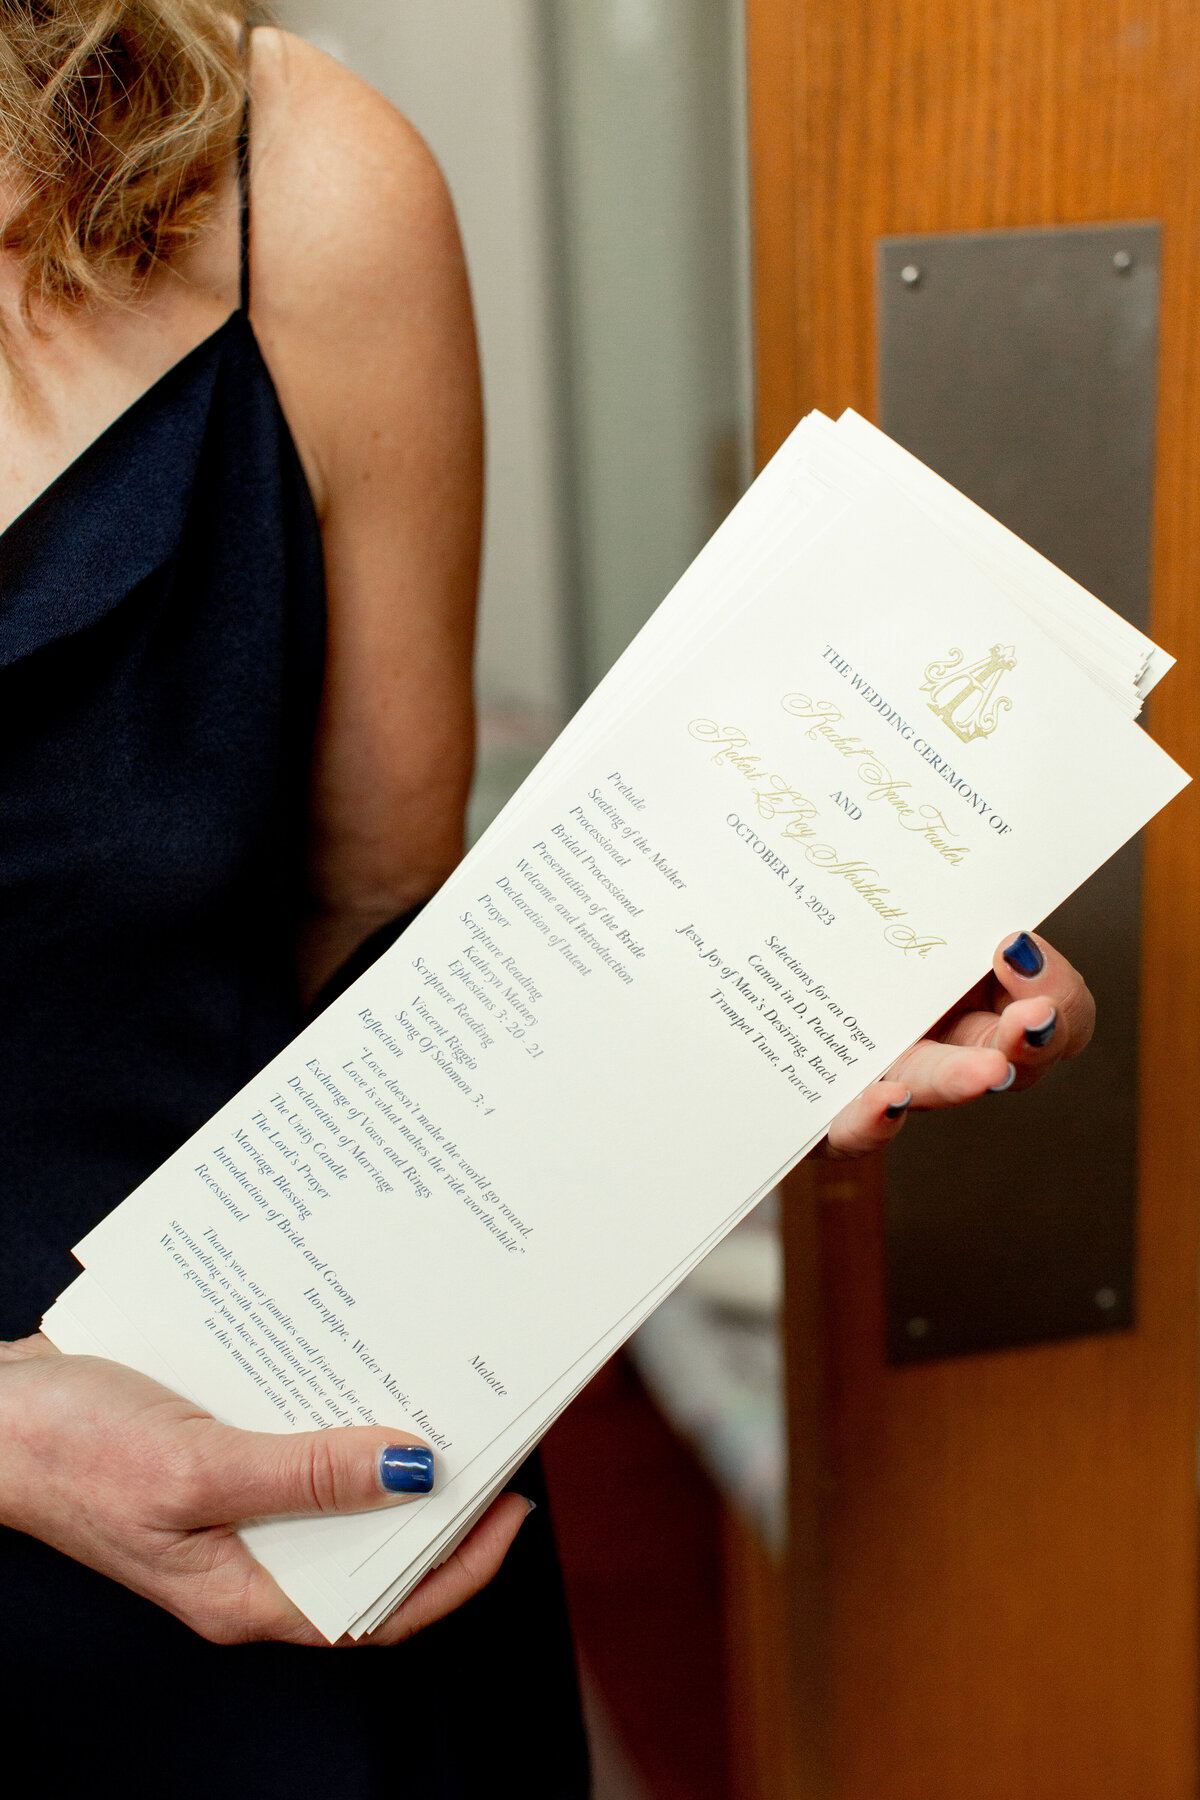 THE WEDDING CEREMONY OF
Rachel Anne Fowler
AND
Robert LeRoy Northcutt Jr.
OCTOBER 14, 2023
Prelude Selections for an Organ
Seating of the Mother Canon in D, Pachelbel
Processional Jesu, Joy of Man's Desiring, Bach
Bridal Processional Trumpet Tune, Purcell
Presentation of the Bride
Welcome and Introduction
Declaration of Intent
Prayer
Scripture Reading
Kathryn Matney
Ephesians 3: 20 - 21
Scripture Reading
Vincent Riggio
Song Of Solomon 3: 4
Reflection
“Love doesn't make the world go round.
Love is what makes the ride worthwhile”
Exchange of Vows and Rings
Declaration of Marriage
The Unity Candle
The Lord's Prayer Malotte
Marriage Blessing
Introduction of Bride and Groom
Recessional Hornpipe, Water Music, Handel
Thank you, our families and friends for
surrounding us with unconditional love and
We are grateful you have traveled near and
in this moment with us.